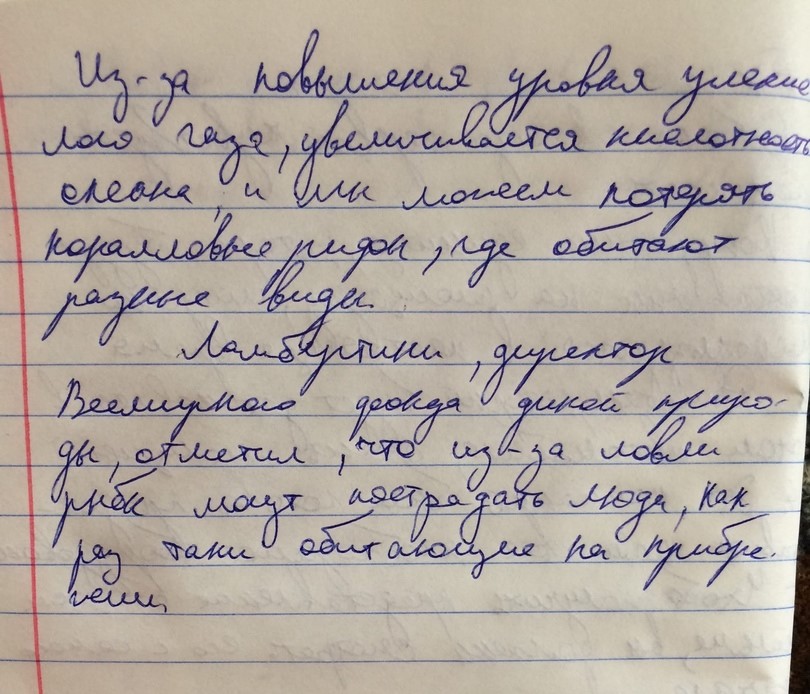 Из-за повышения уровня углекис
лого газа, увеличивается кислотность
океана, и мы можем потерять
коралловые рифы, где обитают
разные виды.
Ламбертини, директор
Всемирного фонда дикой приро-
ды, отметил, что из-за ловли
рыбы могут пострадать люди, как
раз таки обитающие на прибре-
жении.